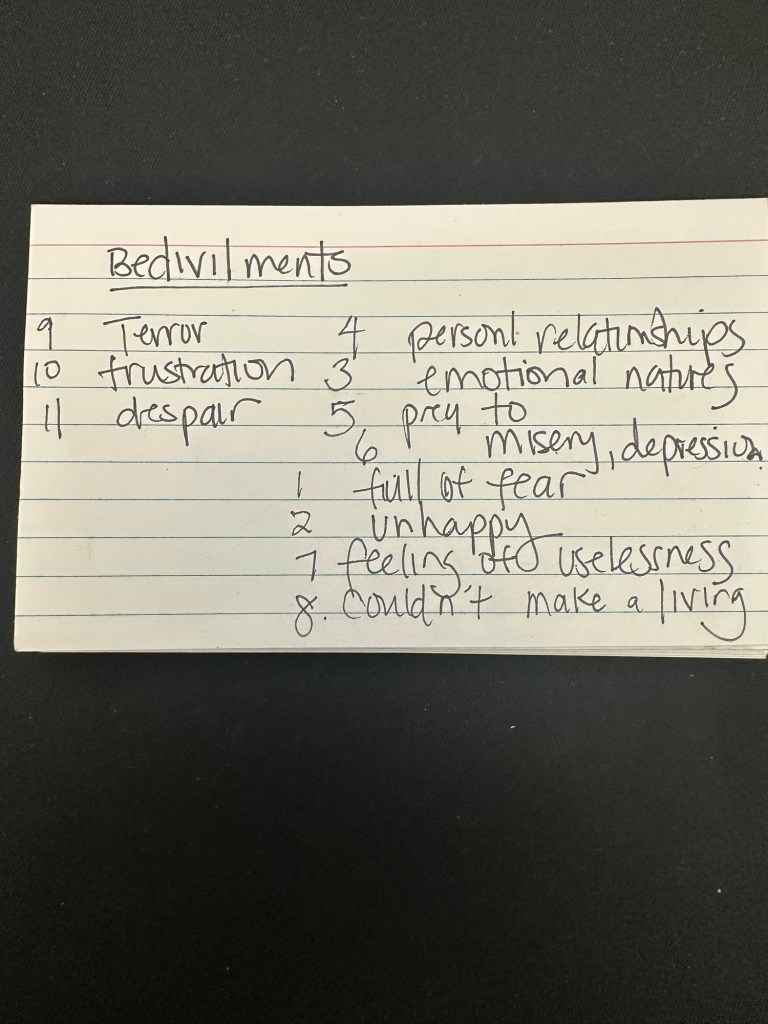 Bedivilments
9 Terror 4 personl relationships
10 frustration 3 emotional natures
11 despair 5 prey to
6 misery, depression.
1 full of fear
2 unhappy
7 feeling of uselessness
8. Couldn't make a living